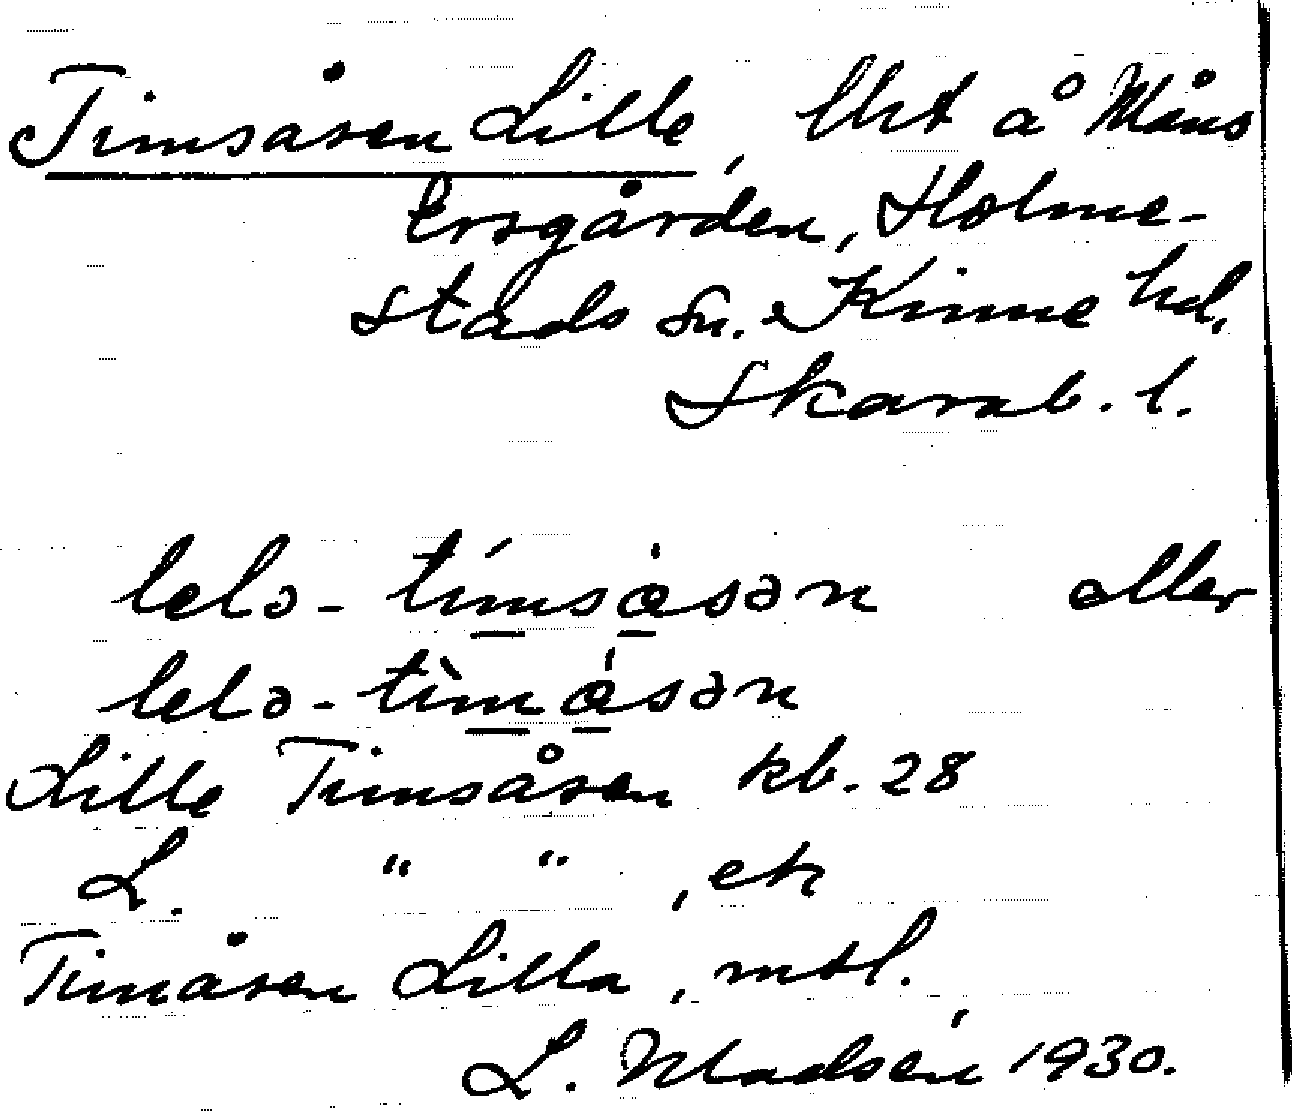 Timsåsen Lille, lht å Måns
Ersgården, Holme-
stads sn. Kinne hd,
Skarab. l.
lelə-tímsåsən eller
lelə-tìmåsən
Lille Timsåsen kb. 28
L. " ", ek
Timåsen Lilla, mtl.
L. Madsén 1930.